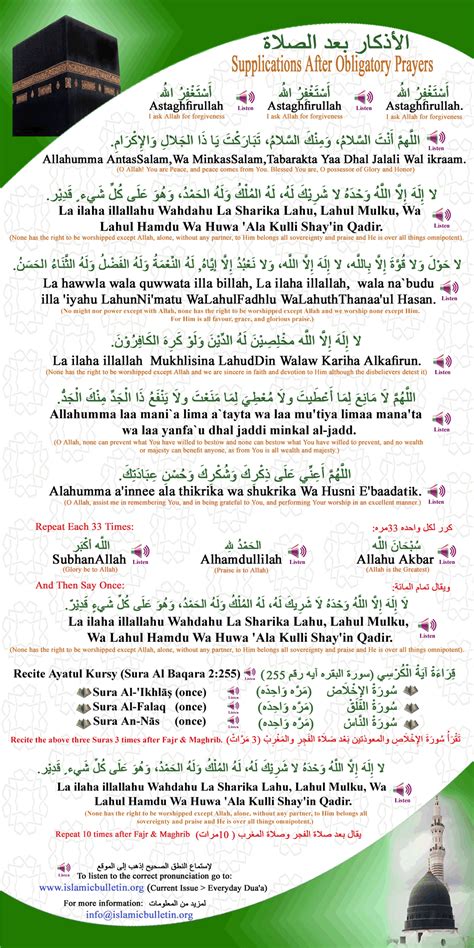 الأذكار بعد الصلاة
Supplications After Obligatory Prayers
أَسْتَغْفِرُ الله أَسْتَغْفِرُ الله أَسْتَغْفِرُ الله
Astaghfirullah Listen Astaghfirullah Listen Astaghfirullah.
I ask Allah for forgiveness I ask Allah for forgiveness I ask Allah for forgiveness
اللَّهُمَّ أَنْتَ السَّلامُ، وَمِنْكَ السَّلامُ، تَبَارَكْتَ يَا ذَا الْجَلالِ وَالإِكْرَامِ. Listen
Allahumma AntasSalam,Wa MinkasSalam,Tabarakta Yaa Dhal Jalali Wal ikraam.
(O Allah! You are Peace, and peace comes from You. Blessed You are, O possessor of Glory and Honor)
لا إِلَهَ إِلَّا اللَّهُ وَحْدَهُ لا شَرِيْكَ لَهُ، لَهُ المُلْكُ وَلَهُ الحَمْدُ، وَهُوَ عَلَى كُلِّ شَيءٍ قَدِيْر.
La ilaha illallahu Wahdahu La Sharika Lahu, Lahul Mulku, Wa
Lahul Hamdu Wa Huwa 'Ala Kulli Shay'in Qadir. Listen
(None has the right to be worshipped except Allah, alone, without any partner, to Him belongs all sovereignty and praise and He is over all things omnipotent).
لا حَوْلَ وَلا قُوَّةَ إِلَّا بِاللَّهِ، لا إِلَهَ إِلَّا اللَّه، وَلا نَعْبُدُ إِلَّا إِيَّاهُ, لَهُ النِّعْمَةُ وَلَهُ الفَضْلُ وَلَهُ الثَّنَاءُ الحَسَنُ.
La hawwla wala quwwata illa billah, La ilaha illallah, wala na`budu
illa 'iyahu LahunNi'matu WaLahulFadhlu WaLahuthThanaa'ul Hasan. Listen
(No might nor power except with Allah, none has the right to be worshipped except Allah and we worship none except Him.
For Him is all favour, grace, and glorious praise.)
لا إِلَهَ إِلَّا اللَّهُ مخْلِصِيْنَ لَهُ الدِّيْنَ وَلَوْ كَرِهَ الكَافِرُوْنَ.
La ilaha illallah Mukhlisina LahudDin Walaw Kariha Alkafirun. Listen
(None has the right to be worshipped except Allah and we are sincere in faith and devotion to Him although the disbelievers detest it)
اللَّهُمَّ لا مَانِعَ لِمَا أَعْطَيتَ وَلا مُعْطِيَ لِمَا مَنَعْتَ وَلا يَنْفَعُ ذَا الْجَدِّ مِنْكَ الْجَدُّ.
Allahumma laa mani`a lima a`tayta wa laa mu'tiya limaa mana'ta
wa laa yanfa`u dhal jaddi minkal al-jadd. Listen
(O Allah, none can prevent what You have willed to bestow and none can bestow what You have willed to prevent, and no wealth
or majesty can benefit anyone, as from You is all wealth and majesty.)
اللَّهُمَّ أَعِنِّي عَلَى ذِكْرِكَ وَشُكْرِكَ وَحُسْنِ عِبَادَتِكَ.
Alahumma a'innee ala thikrika wa shukrika Wa Husni E'baadatik. Listen
(O Allah, assist me in remembering You, and in being grateful to You, and performing Your worship in an excellent manner.)
Repeat Each 33 Times: كرر لكل واحده 33مره:
اللَّه أَكْبَر الحَمْدُ لله سُبْحَانَ اللَّه
SubhanAllah Listen Alhamdullilah Listen Allahu Akbar Listen
(Glory be to Allah) (Praise is to Allah) (Allah is the Greatest)
And Then Say Once: ويقال تمام المائة:
لا إِلَهَ إِلَّا اللَّهُ وَحْدَهُ لا شَرِيْكَ لَهُ، لَهُ المُلْكُ وَلَهُ الحَمْدُ، وَهُوَ عَلَى كُلِّ شَيءٍ قَدِيْر.
La ilaha illallahu Wahdahu La Sharika Lahu, Lahul Mulku,
Wa Lahul Hamdu Wa Huwa 'Ala Kulli Shay'in Qadir. Listen
(None has the right to be worshipped except Allah, alone, without any partner, to Him belongs all sovereignty and praise and He is over all things omnipotent).
Recite Ayatul Kursy (Sura Al Baqara 2:255) Listen قِرَاءَةُ آيَةُ الْكُرْسِي (سورة البقره آيه رقم 255)
Sura Al-'Ikhlāṣ (once) Listen سُورَةُ الإِخْلَاصِ (مَرَّه وَاحِدَه)
Sura Al-Falaq (once) Listen سُورَةُ الْفَلَقِ (مَرَّه وَاحِدَه)
Sura An-Nās (once) Listen سُورَةُ النَّاسِ (مَرَّه وَاحِدَه)
Recite the above three Suras 3 times after Fajr & Maghrib. تَقْرَأُ سُورَةُ الإِخْلَاصِ والمعوذتين بَعْدَ صَلَاةِ الفَجْرِ وَالْمَغْرِبْ (3 مَرَّاتْ)
لا إِلَهَ إِلَّا اللَّهُ وَحْدَهُ لا شَرِيْكَ لَهُ، لَهُ المُلْكُ وَلَهُ الحَمْدُ، وَهُوَ عَلَى كُلِّ شَيءٍ قَدِيْر.
La ilaha illallahu Wahdahu La Sharika Lahu, Lahul Mulku, Wa
Lahul Hamdu Wa Huwa 'Ala Kulli Shay'in Qadir. Listen
(None has the right to be worshipped except Allah, alone, without any partner, to Him belongs all
sovereignty and praise and He is over all things omnipotent).
Repeat 10 times after Fajr & Maghrib يقال بعد صلاة الفجر وصلاة المغرب ( 10مرات)
لإستماع النطق الصحيح إذهب إلى الموقع
Listen To listen to the correct pronunciation go to:
www.islamicbulletin.org (Current Issue > Everyday Dua'a)
For more information: لمزيد من المعلومات
info@islamicbulletin.org